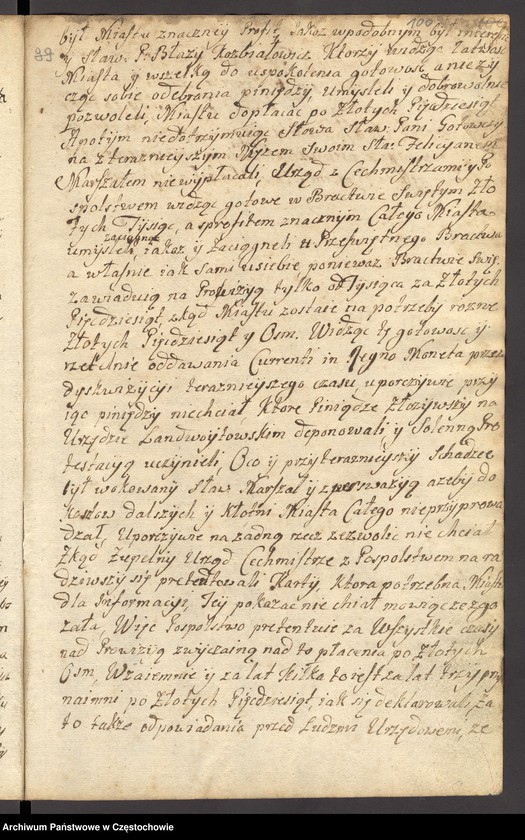 100
99
był Miastu znaczniy Profit, jakoż wpodobnym był intencie
y Sław. P. Błazy Kazbiałowicz Ktorzy widząc łatwość
Miasta y wszelką do uspokoienia gotowość a nie ży
cząc sobie odebrania piniędzy, umysleli y dobrowolnie
pozwoleli, Miastu dopłacać po Złotych Pięćdziesiąt
A potym niedotrzymuiąc Słowa Sław. Pani
na z teraznieyszym Mężem Swoim Sła: Felicyanem
Marszałem niewypłacali, Urząd z Cechmistrzami y Po
spolstwem widząc gotowe w Bractwie Swiętym Zło
tych Tysiąc, a s profitem znacznym Całego Miasta
zaciągnąć
umysleli, jakoz y Zaciągneli u Przeswiętnego Bractwa
a własnie iak sami u siebie poniewaz Bractwu Swię.
zawiaduią na Prowizyą tylko od Tysiąca za Złotych
Pięćdziesiąt, zkąd Miastu zostaie na potrzeby rozne
Złotych Pięćdziesiąt y Osm. Widząc tę gotowosc y
rzetelnie oddawania Currenti in Regno Moneta przez
dyskwizycyi teraznieyszego czasu, uporczywie przy
iąc piniędzy niechciał, Ktore Piniądze złożywszy na
Urzędzie Landwoytowskim deponowali y Solenną Pro
testacyą uczynieli, Oco y przy teraznieyszy Schadzce
był wokowany Sław. Marszał y z perswazyą azeby do
Kosztow dalszych y Kłotni Miasta Całego nieprzyprowa
dzał, Uporczywie na zadną rzecz zezwolic nie chciał
Zkąd Zupełny Urząd Cechmistrze z Pospolstwem na ra
dziwszy się pretentowali Karty, Ktora potrzebna Miastu
dla Informacyi, Jey pokazac nie chiał mowiąc ze zgo
zała. Więc Pospolstwo pretentuie za Wszystkie czasy
nad Prowizią zwyczainą nad to płacenia po Złotych
Osm, Wzaiemnie y za lat Kilka to iest za lat trzy przy
naimni po Złotych Pięćdziesiąt, iak się deklarowali, za
to także odpowiadania przed Ludzmi Urzędowemi, ze
Archiwum Państwowe w Częstochowie